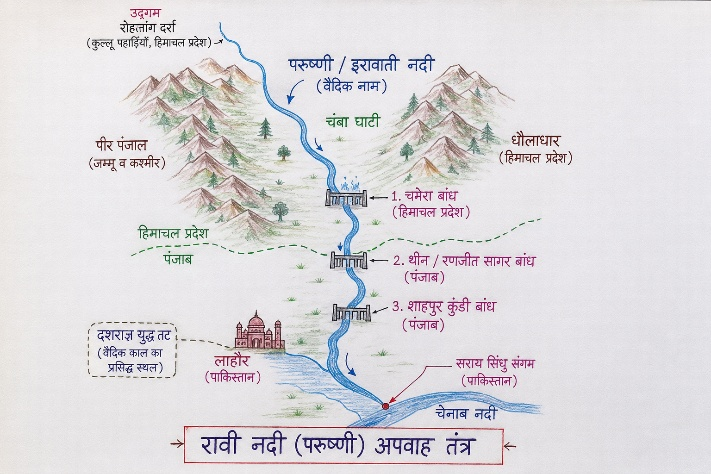 उद्गम
रोहतांग दर्रा
(कुल्लू पहाड़ियाँ, हिमाचल प्रदेश)
परुष्णी / इरावाती नदी
(वैदिक नाम)
चंबा घाटी
पीर पंजाल
(जम्मू व कश्मीर)
धौलाधार
(हिमाचल प्रदेश)
1. चमेरा बांध
(हिमाचल प्रदेश)
हिमाचल प्रदेश
पंजाब
2. थीन / रणजीत सागर बांध
(पंजाब)
3. शाहपुर कुंडी बांध
(पंजाब)
दशराज्ञ युद्ध तट
(वैदिक काल का
प्रसिद्ध स्थल)
लाहौर
(पाकिस्तान)
सराय सिंधु संगम
(पाकिस्तान)
चेनाब नदी
रावी नदी (परुष्णी) अपवाह तंत्र